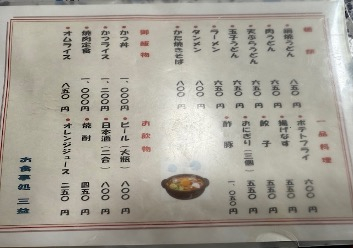 麺類
・鍋焼うどん 八五〇円
・肉うどん 円
・天ぷらうどん 円
・玉子うどん 六五〇円
・ラーメン 円
・タンメン 円
・かた焼きそば 八〇〇円
御飯物
・かつ丼 一、〇〇〇円
・かつライス 一、二〇〇円
・焼肉定食 一、〇〇〇円
・オムライス 八五〇円
一品料理
・ポテトフライ 六〇〇円
・揚げなす 五五〇円
・餃子 五五〇円
・おにぎり(三個) 五五〇円
・酢豚 一、〇五〇円
お飲物
・ビール(大瓶) 八〇〇円
・日本酒(二合) 八〇〇円
・焼酎 四五〇円
・オレンジジュース 二五〇円
お食事処 三益